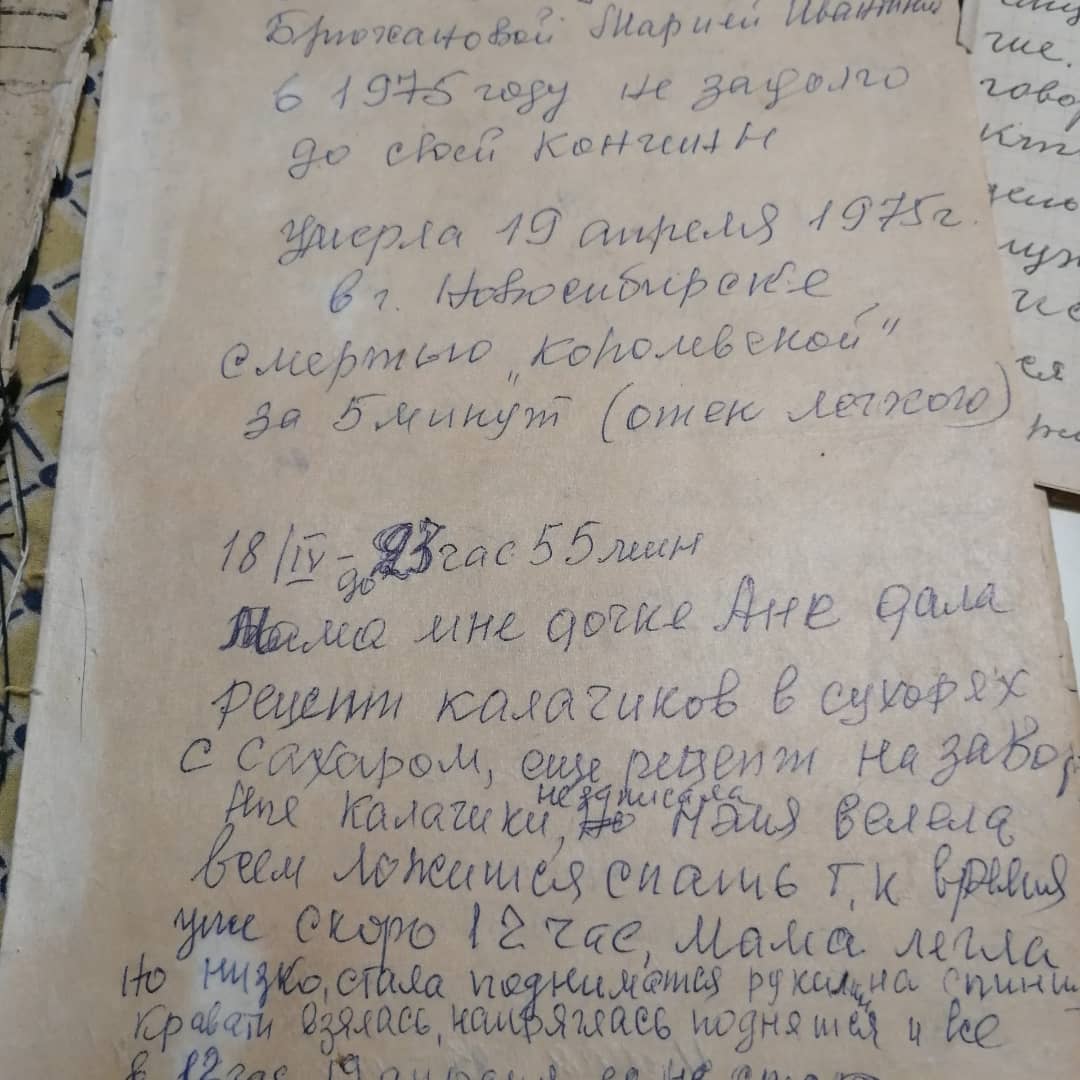 Брюхановой Марией
в 1975 году не задолго
до своей кончины
умерла 19 апреля 1975г.
в г. Новосибирске
смертью „королевской"
за 5 минут (отек легкого)
18/IV - 23 час 55 мин
до
Мама мне дочке Ане дала
рецепт калачиков в сухорях
с сахаром, еще рецепт на
незаписала
калачики, но Мэля велела
всем ложится спать т.к время
уже скоро 12 час, мама легла
но низко, стала подниматся руками на
кравати взялась, напряглась поднятся и все
в 12 час 19 апреля ее не
чие.